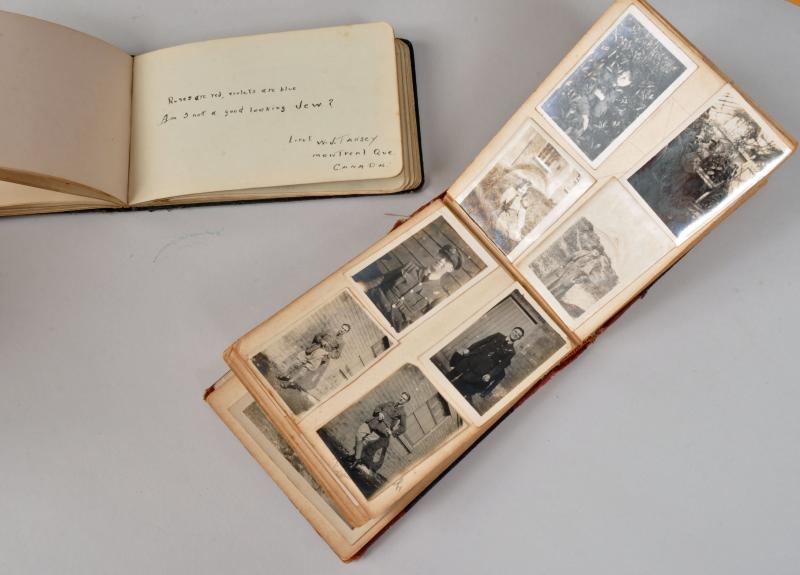 Roses are red, violets are blue
Am I not a good looking Jew?
Lieut W.J. Tansey
Montreal Que.
CANADA.